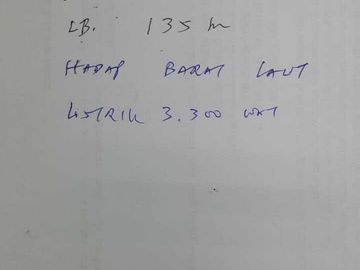 LB. 135 m
HADAP BARAT LAUT
LISTRIK 3.300 WAT